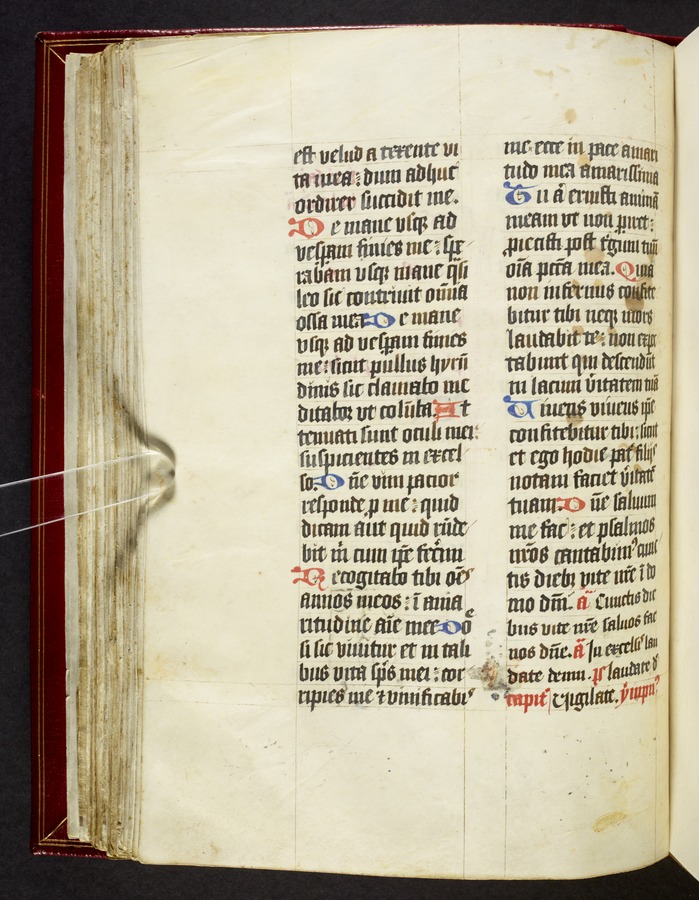 est velud a texente vi
ta mea : dum adhuc
ordirer succidit me .
De mane vsqꝫ ad
vespam finies me : spe
rabam vsqꝫ mane q̄si
leo sic contriuit om̄ia
ossa mea De mane
vsqꝫ ad vespam finies
me : sicut pullus hyrū
dinis sic clamabo me
ditabor vt colūba . At
tenuati sunt oculi mei :
suspicientes in excel
so . Dn̄e vim pacior
responde p me : quid
dicam aut quid rn̄de
bit m̄ cum ip̄e fec̄im
Recogitabo tibi oēs
annos meos : ī ama
ritudine aīe mee Dō
si sic viuitur et in tali
bus vita sp̄s mei : cor
ripies me ⁊ viuificabis
me ecce in pace amari
tudo mea amarissima
Tu ā eruisti animā
meam vt non piret :
proiecisti post t̄gum tuū
oīa pccā mea . Quia
non infernus confite
bitur tibi neqꝫ mors
laudabit te : non expc
tabunt qui descendūt
in lacum v̄itatem tuā
Viuens viuens ip̄e
confitebitur tibi : sicut
et ego hodie pat̄ filijs
notam faciet v̄itatē
tuam . Dn̄e saluum
me fac : et psalmos
nr̄os cantabimꝰ cunc
tis diebꝫ vite nr̄e ī do
mo dn̄i . a Cunctis die
bus vite nr̄e saluos fac
nos dn̄e . a In excelsis lau
date deum . ps laudate d
capit̄ Vigilate .